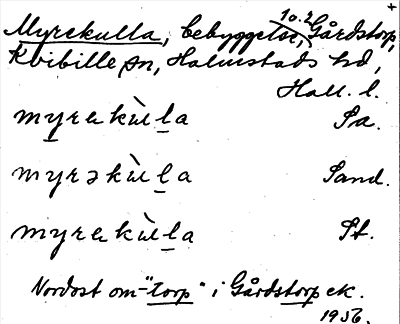 10.2
Myrekulla, bebyggelse, Gårdstorp,
Kvibille sn, Halmstads hd,
Hall. l.
myrakùla Sa.
myrəkùla Sand.
myrakùla St.
Nordost om "torp" i Gårdstorp ek.
1956.